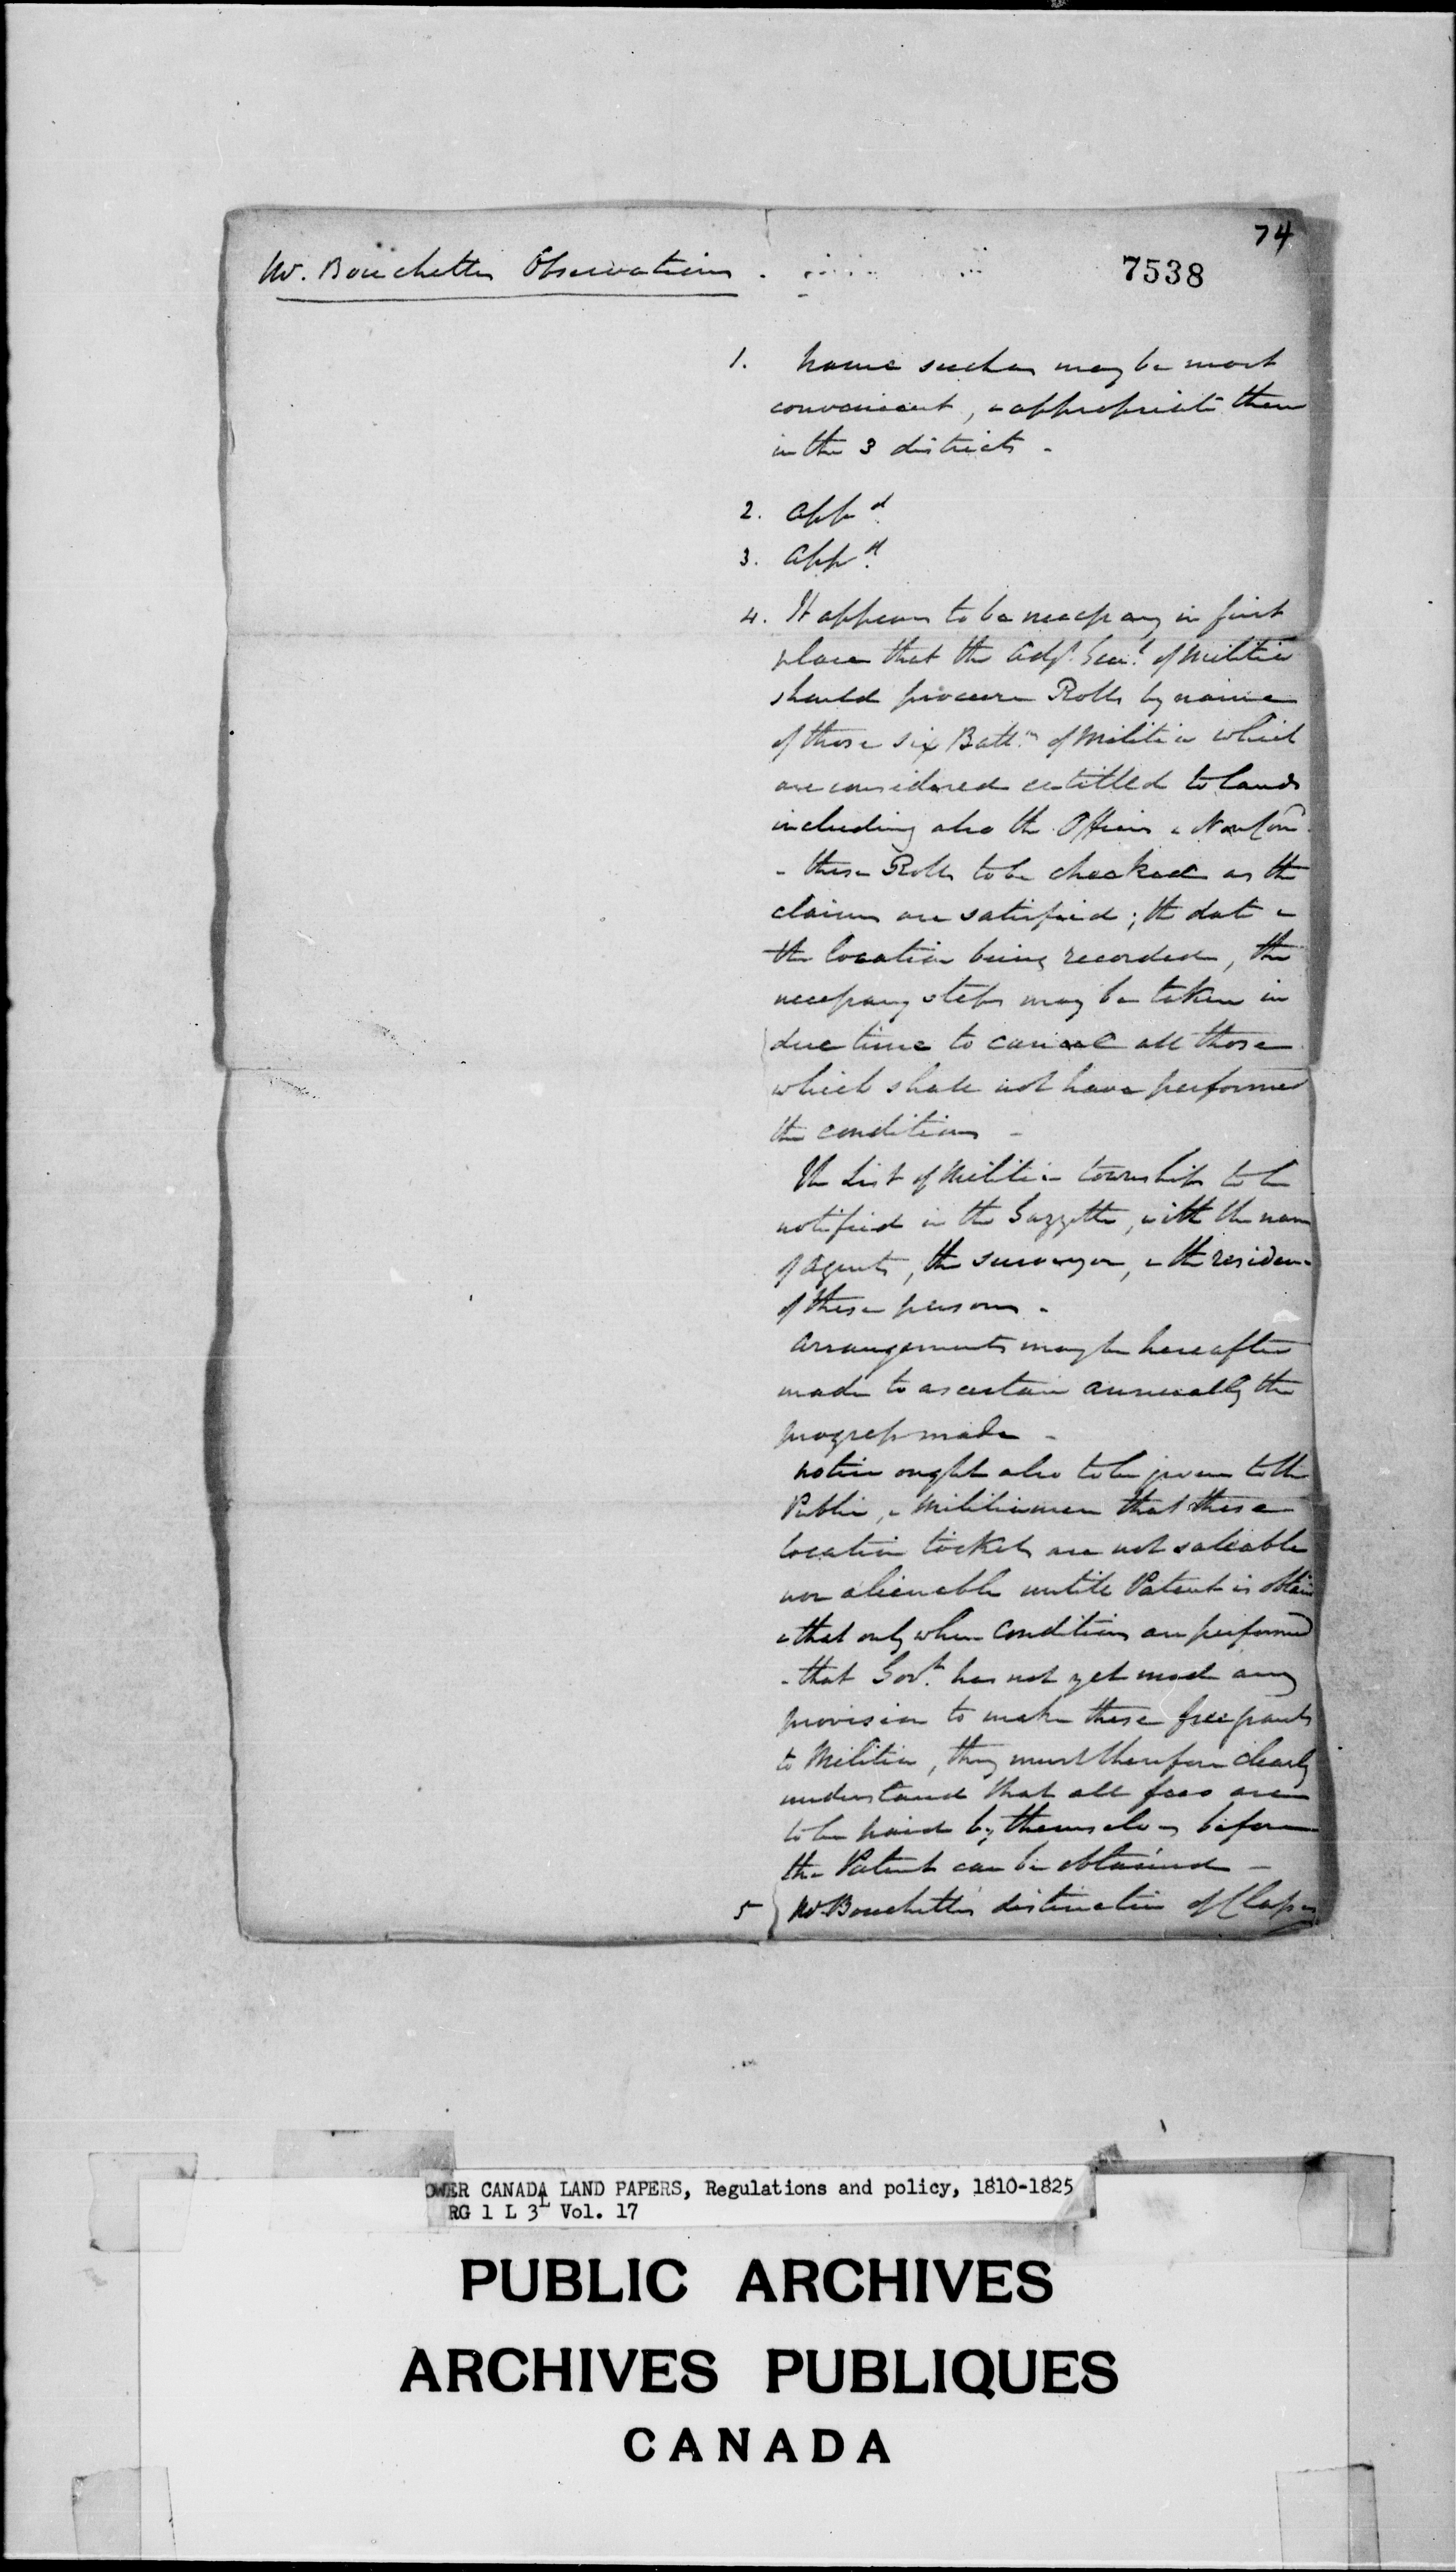 74
7538
Mr. Bouchettes Observations.
1. Name such as may be most
convenient, & appropriate them
in the 3 districts -
2. App.d
3. App.d
4. It appears to be necessary in first
place that the Adj.t Gen.l of Militia
should procure Rolls by name
of those six Batt.ns of Militia which
are considered entitled to lands
including also the Officers & Non Com.
- these Rolls to be checked as the
claims are satisfied; the date &
the location being recorded, the
necessary steps may be taken in
due time to cancel all those
which shall not have performed
the conditions -
The List of Militia townships to be
notified in the Gazzette, with the name
of Agents, the surveyor, & the residence
of these persons -
Arrangements may be hereafter
made to ascertain annually the
progress made -
Notice ought also to be given to the
Public, & Militiamen that these
location tickets are not saleable
nor alienable untill Patent is obtain
& that only when Conditions are performed
- that Gov.t has not yet made any
provision to make these free grants
to Militia, they must therefore clearly
understand that all fees are
to be paid by themselves before
the Patent can be obtained -
5 Mr Bouchette's distinction of Classes
OWER CANADA LAND PAPERS, Regulations and policy, 1810-1825
RG 1 L 3L Vol. 17
PUBLIC ARCHIVES
ARCHIVES PUBLIQUES
CANADA